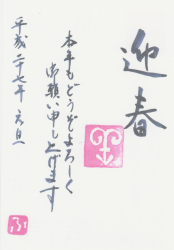 迎春
本年もどうぞよろしく
御願い申し上げます
平成二十七年 元旦
ふ